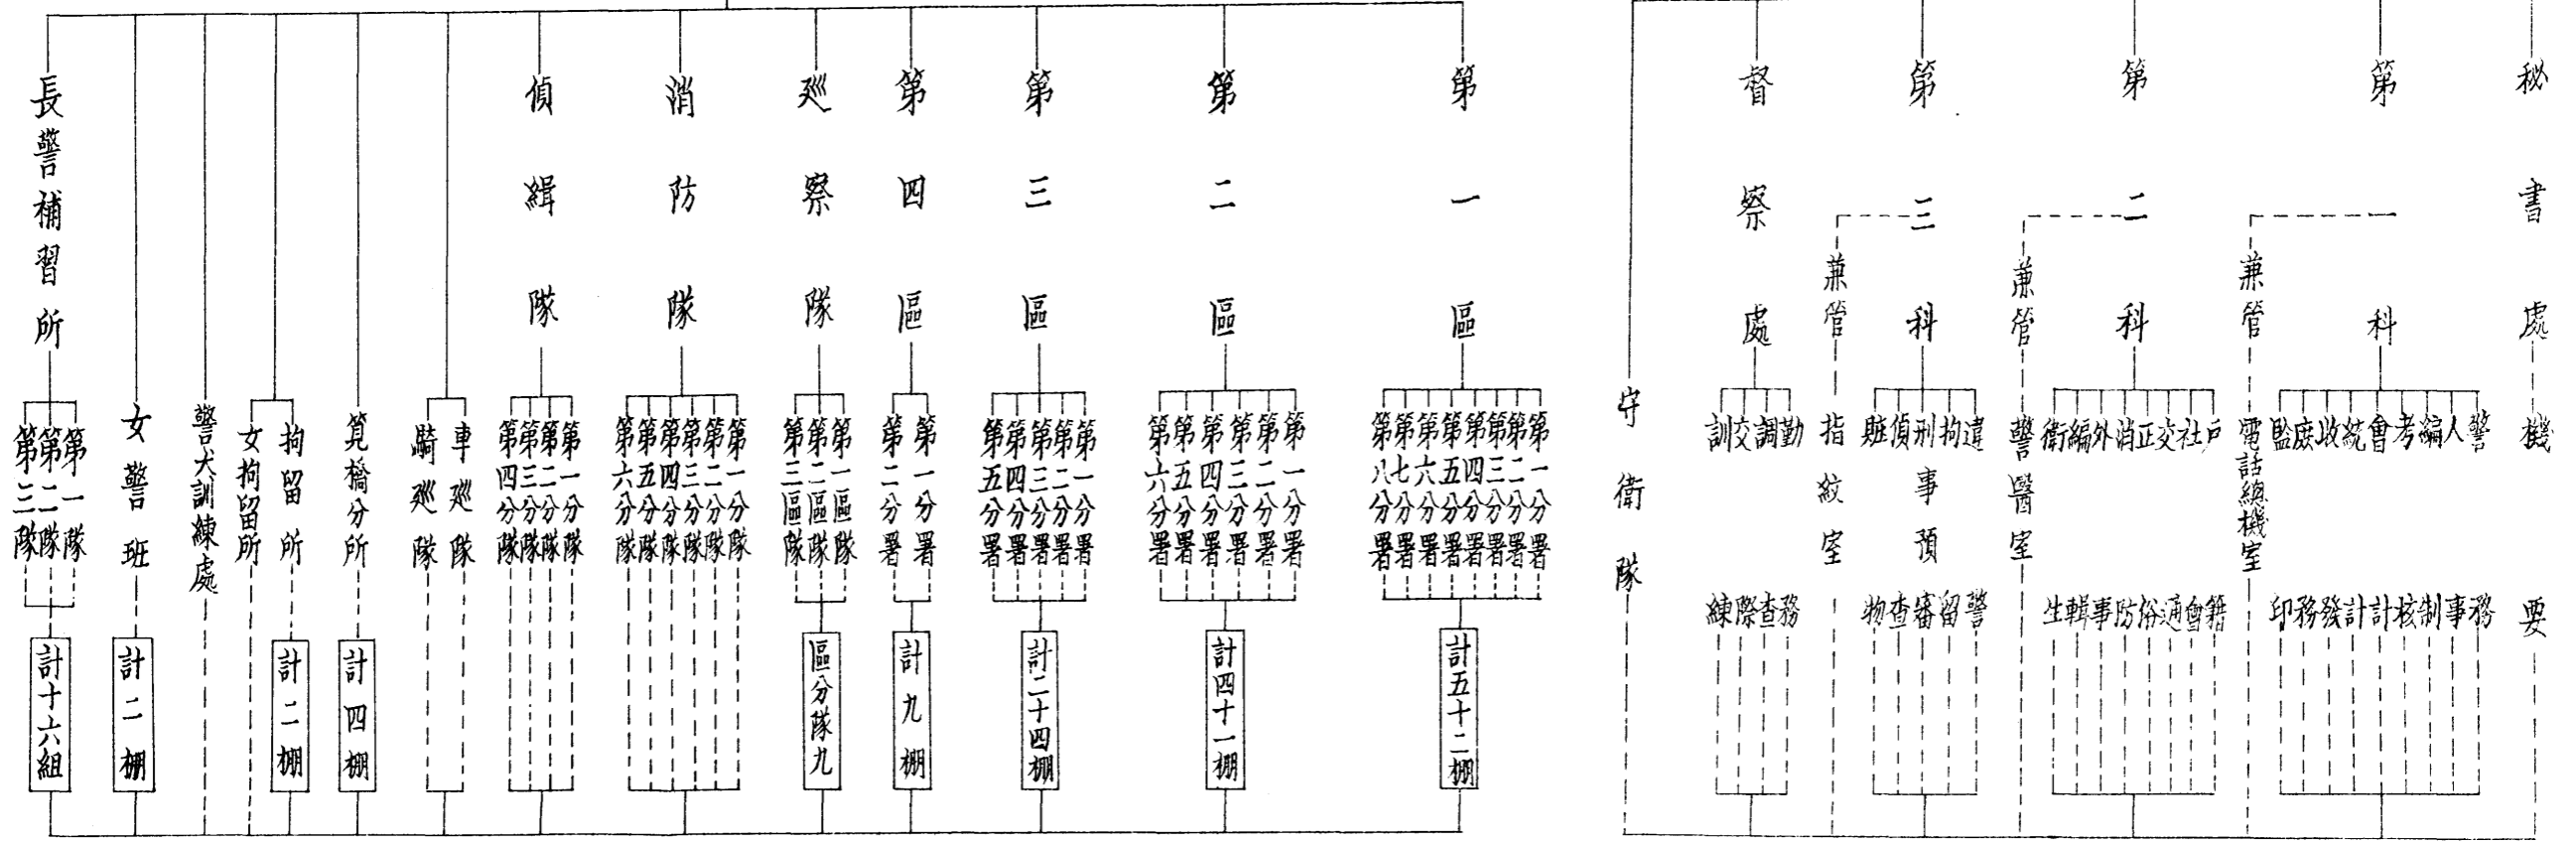 秘書處
機要
第一科
警務
人事
編制
考核
會計
統計
收發
庶務
監印
兼管
電話總機室
第二科
戶籍
社會
交通
正俗
消防
外事
編輯
衛生
兼管
警醫室
第三科
違警
拘留
刑事預審
偵查
賍物
兼管
指紋室
督察處
勤務
調查
交際
訓練
守衛隊
第一區
第一分署
第二分署
第三分署
第四分署
第五分署
第六分署
第七分署
第八分署
計五十二棚
第二區
第一分署
第二分署
第三分署
第四分署
第五分署
第六分署
計四十一棚
第三區
第一分署
第二分署
第三分署
第四分署
第五分署
計二十四棚
第四區
第一分署
第二分署
計九棚
廵察隊
第一區隊
第二區隊
第三區隊
區分隊九
消防隊
第一分隊
第二分隊
第三分隊
第四分隊
第五分隊
第六分隊
偵緝隊
第一分隊
第二分隊
第三分隊
第四分隊
車廵隊
騎廵隊
筧橋分所
計四棚
拘留所
計二棚
女拘留所
警犬訓練處
女警班
計二棚
長警補習所
第一隊
第二隊
第三隊
計十六組